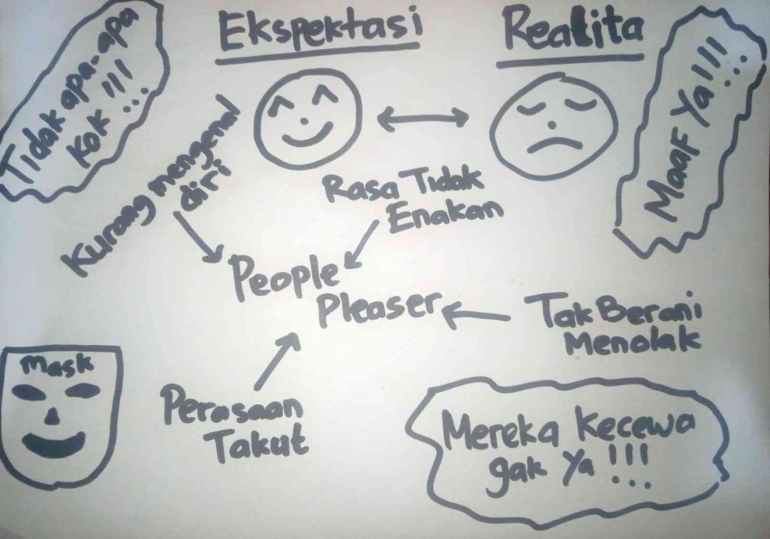 Tidak apa-apa
Kok !!!
Ekspektasi
Realita
Maaf Ya!!!
Kurang mengenal
diri
Rasa Tidak
Enakan
People
Pleaser
Tak Berani
Menolak
Mask
Perasaan
Takut
Mereka Kecewa
gak Ya !!!